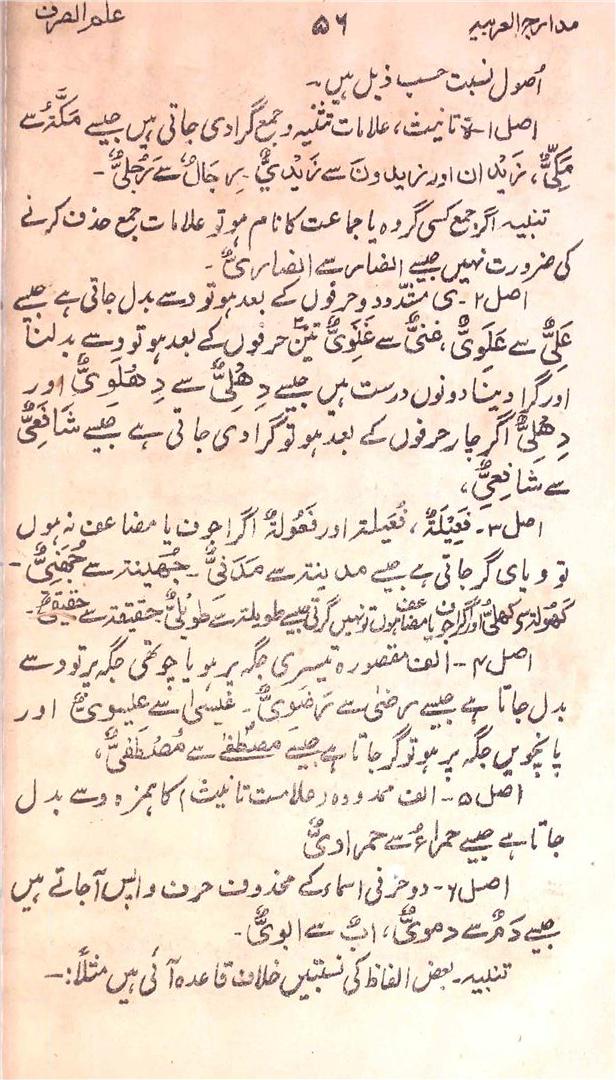 مدارج العربیہ ۵۶ علم الصرف
اُصول نسبت حسب ذیل ہیں۔
اصل ۱۔ ۃ تانیث، علامات تثنیہ و جمع گرا دی جاتی ہیں جیسے مَکَّۃٌ سے
مَکِّیٌّ، زَیْدَانِ اور زیدونَ سے زَیْدِیٌّ۔ رِجَالٌ سے رَجُلِیٌّ۔
تنبیہ اگر جمع کسی گروہ یا جماعت کا نام ہو تو علامات جمع حذف کرنے
کی ضرورت نہیں جیسے انصار سے انصاریٌّ۔
اصل ۲۔ ی مشدّد دو حرفوں کے بعد ہو تو و سے بدل جاتی ہے جیسے
عَلِیٌّ سے عَلَوِیٌّ، غنیٌّ سے غَنَوِیٌّ تین حرفوں کے بعد ہو تو و سے بدلنا
اور گرا دینا دونوں درست ہیں جیسے دِھْلِیٌّ سے دِھْلَوِیٌّ اور
دِھْلِیٌّ اگر چار حرفوں کے بعد ہو تو گرا دی جاتی ہے جیسے شَافَعِیٌّ
سے شافِعِیٌّ،
اصل ۳۔ فَعِیْلَۃٌ، فُعَیلۃ اور فَعُولۃٌ اگر اجوف یا مضاعف نہ ہوں
تو و یا ی گر جاتی ہے جیسے مدینۃ سے مَدَنیٌّ۔ جُھَینۃ سے جُھَنِیٌّ۔
کَھُولۃ سے کَھَلِیٌّ اور اگر اجوف یا مضاعف ہوں تو نہیں گرتی جیسے طویلۃ سے طویلیٌّ حقیقۃ سے حقیقیٌّ۔
اصل ۴۔ الف مقصورہ تیسری جگہ پر ہو یا چوتھی جگہ پر تو و سے
بدل جاتا ہے جیسے رضیٰ سے رَضَوِیٌّ۔ عیسیٰ سے عیسویٌّ اور
پانچویں جگہ پر ہو تو گر جاتا ہے جیسے مصطفیٰ سے مُصْطَفِیٌّ،
اصل ۵۔ الف ممدودہ (علامت تانیث) کا ہمزہ و سے بدل
جاتا ہے جیسے حمراءُ سے حمراویٌّ
اصل ۶۔ دو حرفی اسماء کے محذوف حرف واپس آجاتے ہیں
جیسے دَمٌ سے دمویٌّ، ابٌ سے ابویٌّ۔
تنبیہ۔ بعض الفاظ کی نسبتیں خلاف قاعدہ آئی ہیں مثلاً:۔